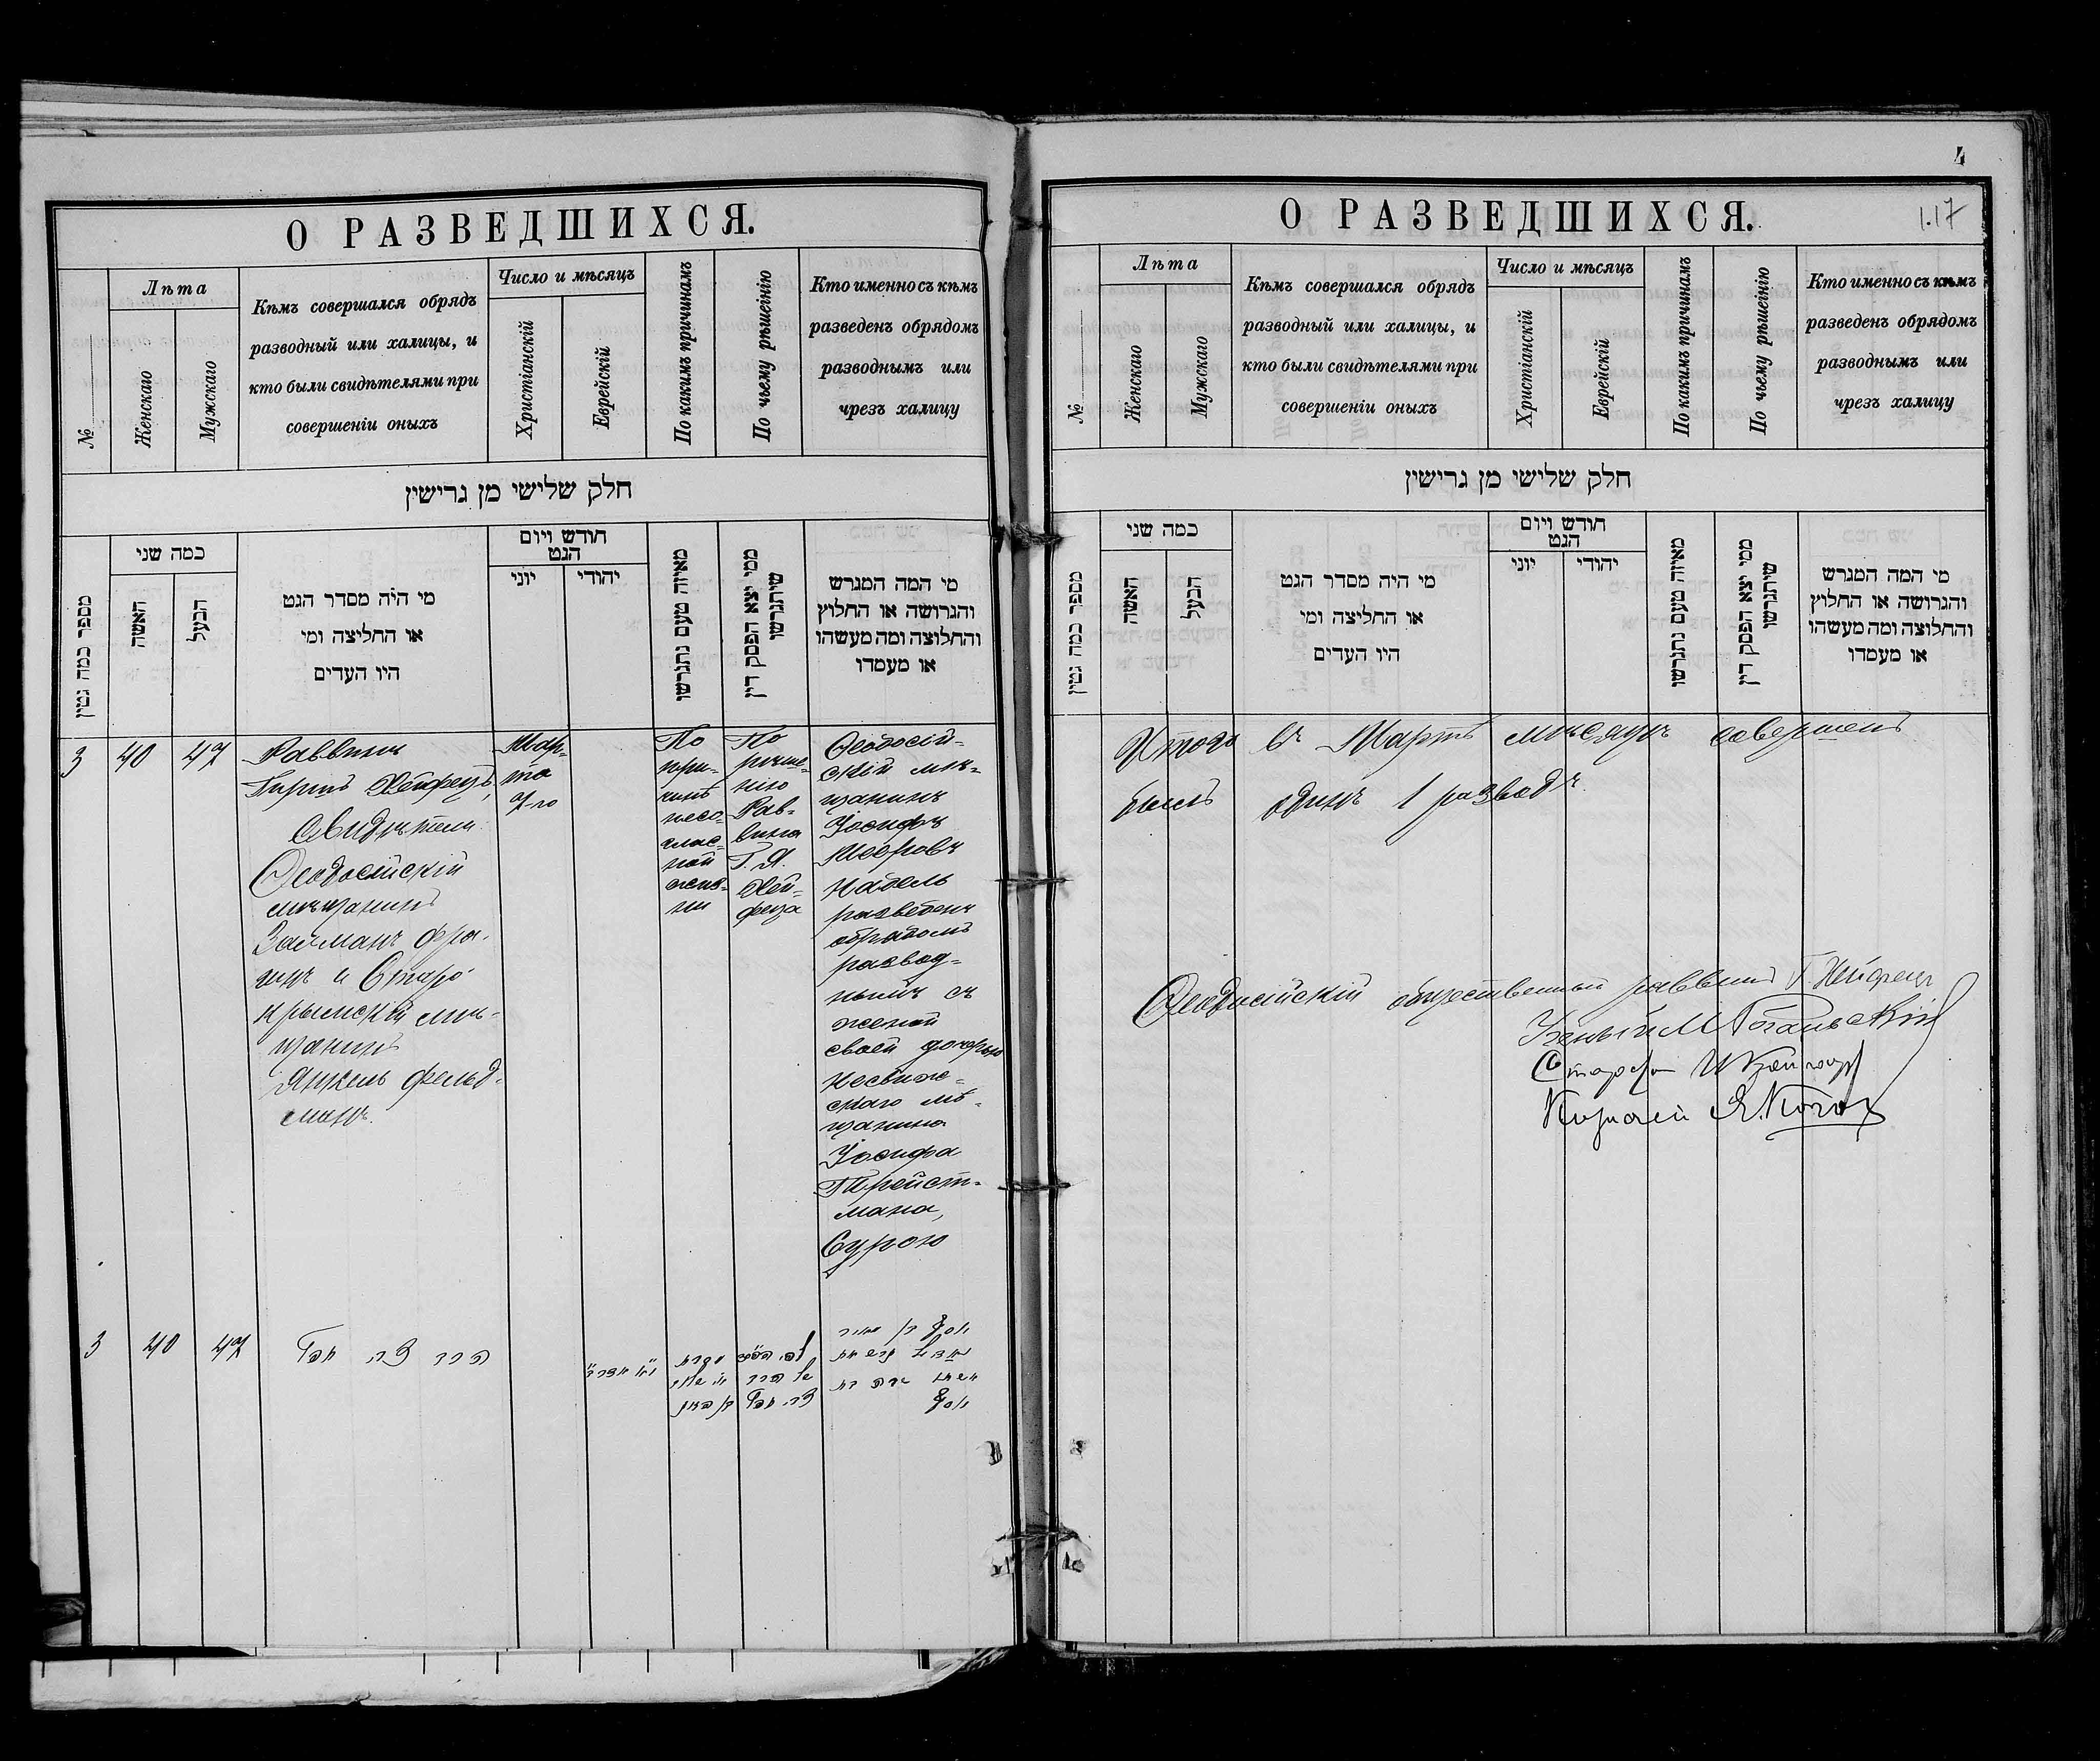 О РАЗВЕДШИХСЯ.
№
Лѣта
Женскаго
Мужскаго
Кѣмъ совершался обрядъ
разводный или халицы, и
кто были свидѣтелями при
совершеніи оныхъ
Число и мѣсяцъ
Христіанскій
Еврейскій
По какимъ причинамъ
По чьему рѣшеінію
Кто именно съ кѣмъ
разведенъ обрядомъ
разводнымъ или
чрезъ халицу
חלק שלישי מן גרישין
מספר כמה גטין
כמה שני
האשה
הבעל
מי היה מסדר הגט
או החליצה ומי
היו העדים
חודש ויום
הגט
יוני
יהודי
מאיזה טעם נתגרשו
ממי יצא הפסק דין
שיתגרשו
מי המה המגרש
והגרושה או החלוץ
והחלוצה ומה מעשהו
או מעמדו
3
40
47
Раввинъ
Гиршъ Хейфецъ,
Свидѣтели
Ѳеодосійскій
мѣщанинъ
Залманъ Фра-
инъ и Старо-
крымскій мѣ-
щанинъ
Янкель Фельд-
манъ.
Мар-
та
7-го
По
при-
чинѣ
несо-
глас-
ной
жиз-
ни
По
рѣше-
нію
Рав-
вина
Г. Я.
Хей-
феца
Ѳеодосій-
скій мѣ-
щанинъ
Іосифъ
Мееровъ
Надель
разведенъ
обрядомъ
развод-
нымъ съ
женой
своей дочерью
Несвиж-
скаго мѣ-
щанина
Іосифа
Трейст-
мана,
Сурою
3
40
47
הרב צבי חפץ
לפי הפסק
של הרב
צבי חפץ
יוסף בן מאיר
יוסף
4
О РАЗВЕДШИХСЯ.
1.17
№
Лѣта
Женскаго
Мужскаго
Кѣмъ совершался обрядъ
разводный или халицы, и
кто были свидѣтелями при
совершеніи оныхъ
Число и мѣсяцъ
Христіанскій
Еврейскій
По какимъ причинамъ
По чьему рѣшеінію
Кто именно съ кѣмъ
разведенъ обрядомъ
разводнымъ или
чрезъ халицу
חלק שלישי מן גרישין
מספר כמה גטין
כמה שני
האשה
הבעל
מי היה מסדר הגט
או החליצה ומי
היו העדים
חודש ויום
הגט
יוני
יהודי
מאיזה טעם נתגרשו
ממי יצא הפסק דין
שיתגרשו
מי המה המגרש
והגרושה או החלוץ
והחלוצה ומה מעשהו
או מעמדו
Итого въ Мартѣ мѣсяцѣ совершенъ
былъ одинъ 1 разводъ.
Ѳеодосійскій общественный раввинъ Г. Хейфецъ
Ученый М
Староста И
Казначей Я. Коган